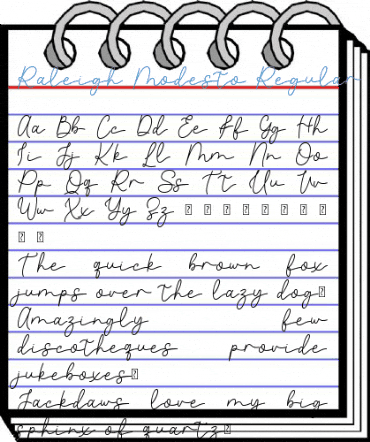 Raleigh Modesto Regular
Aa Bb Cc Dd Ee Ff Gg Hh
Ii Jj Kk Ll Mm Nn Oo
Pp Qq Rr Ss Tt Uu Vv
Ww Xx Yy Zz
The quick brown fox
jumps over the lazy dog
Amazingly few
discotheques provide
jukeboxes
Jackdaws love my big
sphinx of quartz